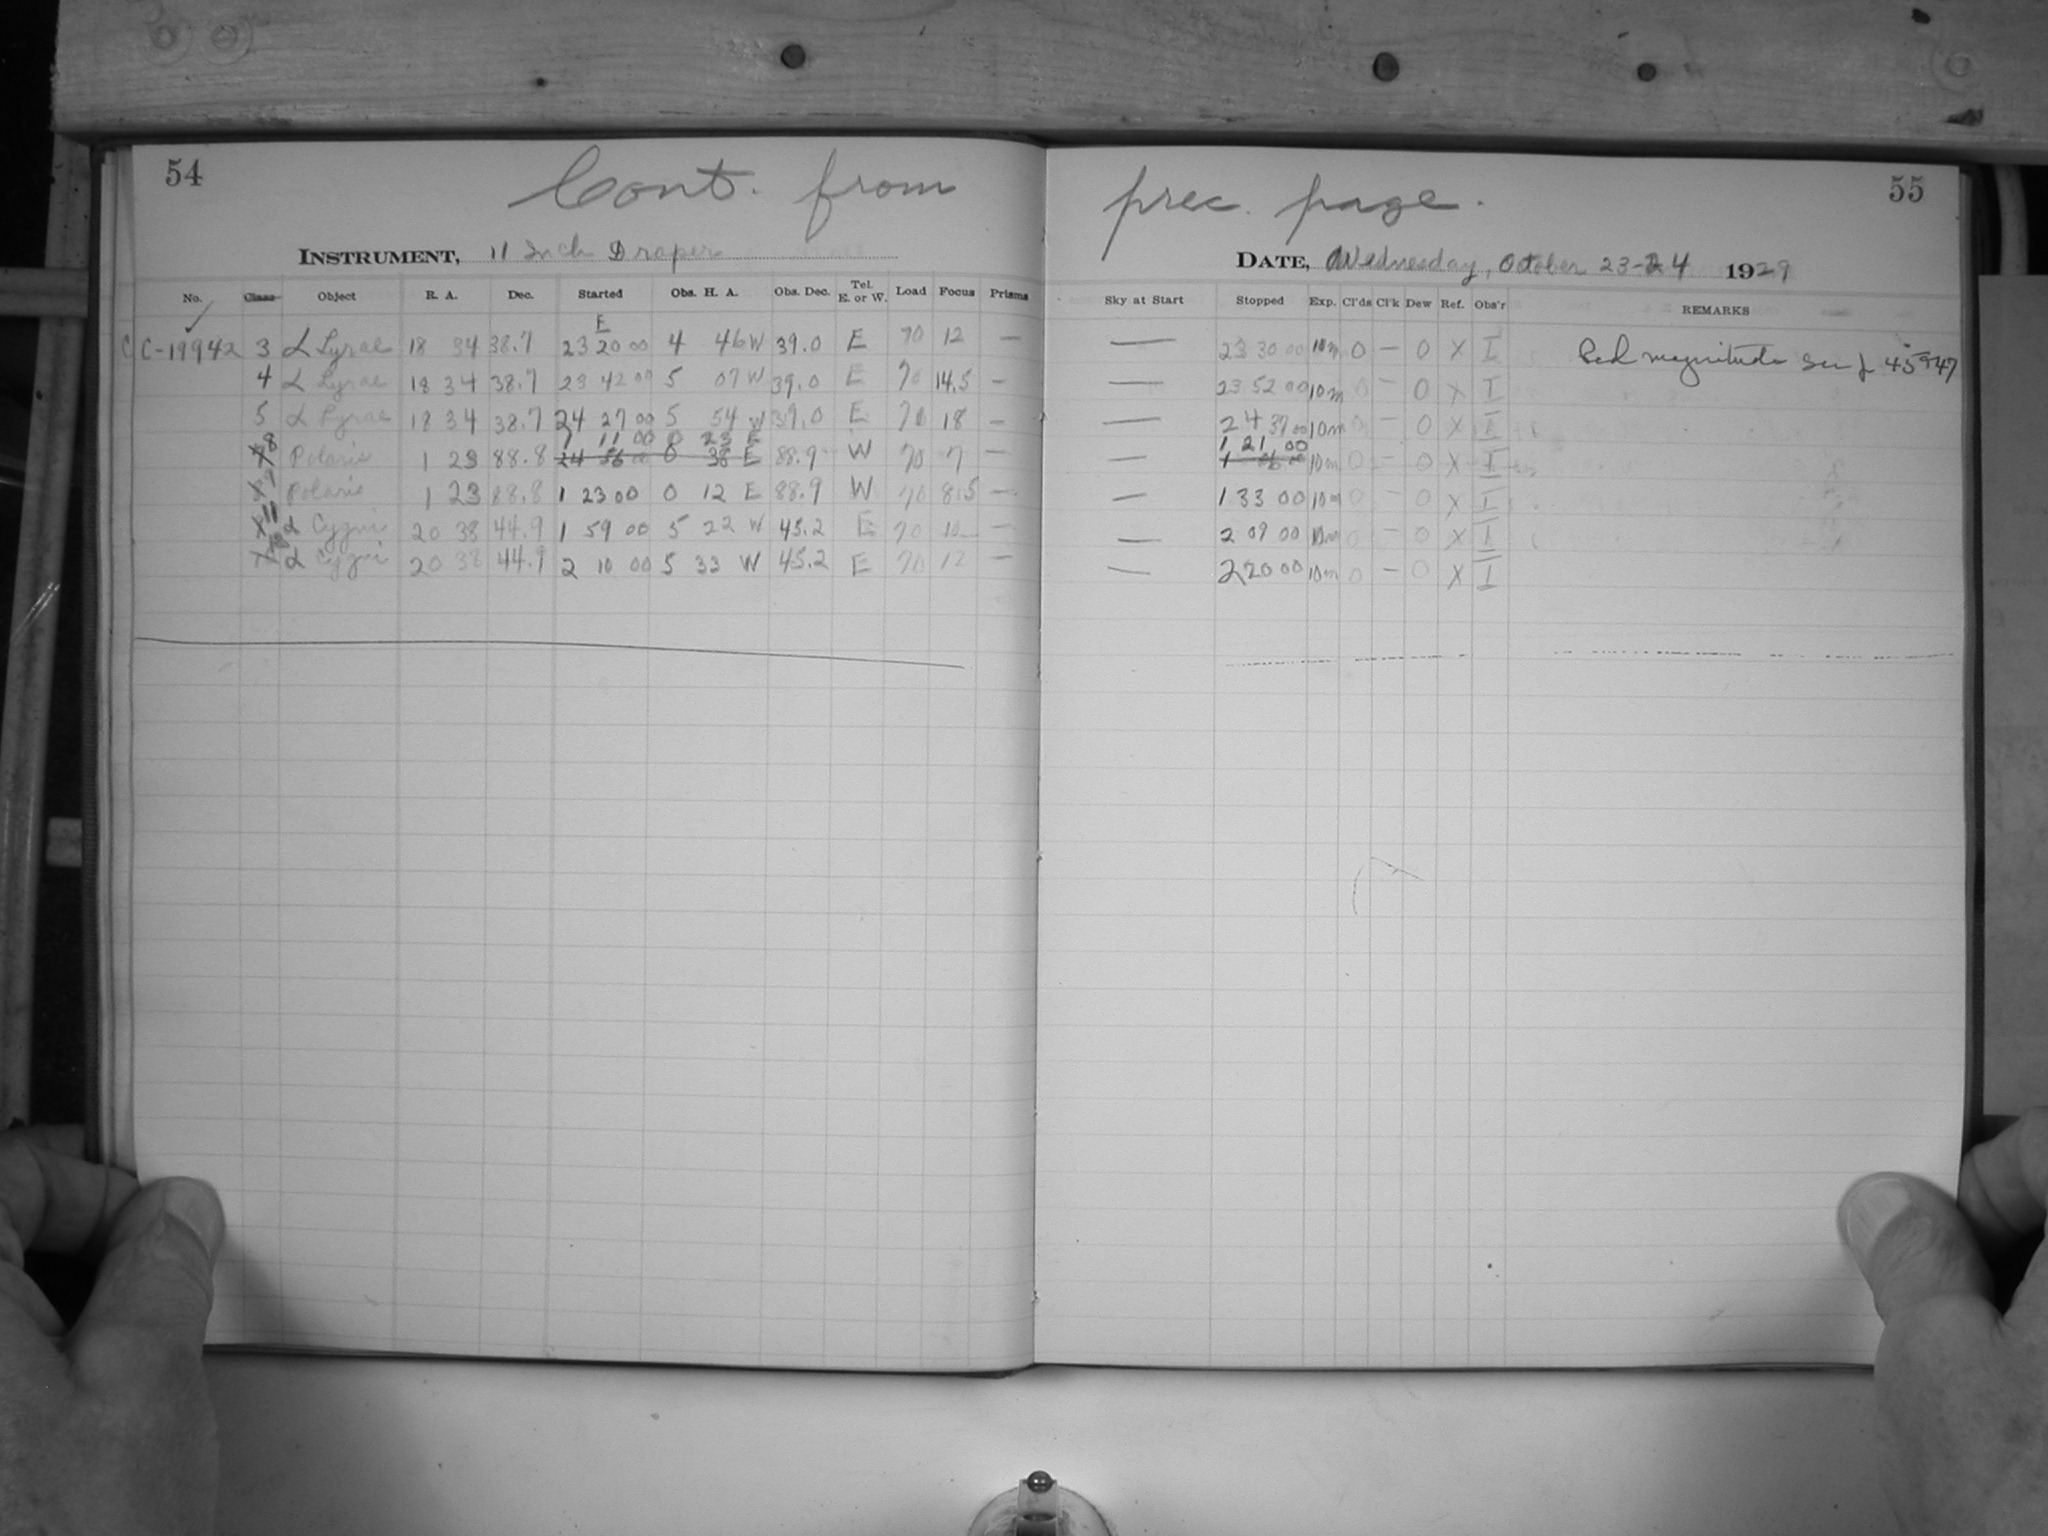 54
Cont. from prec. page.
55
INSTRUMENT, 11 Inch Draper
DATE, Wednesday, October 23-24 1929
No. Class Object R. A. Dec. Started Obs. H. A. Obs. Dec. Tel. E. or W. Load Focus Prisms Sky at Start Stopped Exp. Cl'ds Cl'k Dew Ref. Obs'r REMARKS
E
C C-19942 3 α Lyrae 18 34 38.7 23 20 00 4 46 W 39.0 E 70 12 — — 23 30 00 10m 0 — 0 X I Red magnitude
4 α Lyrae 18 34 38.7 23 42 00 5 07 W 39.0 E 70 14.5 — — 23 52 00 10m 0 — 0 X I
5 α Lyrae 18 34 38.7 24 27 00 5 54 W 39.0 E 70 18 — — 24 37 00 10m 0 — 0 X I
1 11 00 0 23 E 1 21 00
8 Polaris 1 23 88.8 24 56 00 0 38 E 88.9 W 70 7 — — 1 06 00 10m 0 — 0 X I
9 Polaris 1 23 88.8 1 23 00 0 12 E 88.9 W 70 8.5 — — 1 33 00 10m 0 — 0 X I
11 α Cygni 20 38 44.9 1 59 00 5 22 W 45.2 E 70 10 — — 2 09 00 10m 0 — 0 X I
α Cygni 20 38 44.9 2 10 00 5 33 W 45.2 E 70 12 — — 2 20 00 10m 0 — 0 X I